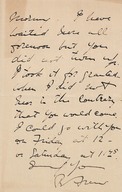 I have
waited here all
forenoon but you
did not turn up.
I took it for granted
when I did not
hear to the contrary
that you would come
I could go with you
on Friday at 12 -
or Saturday at 1.25